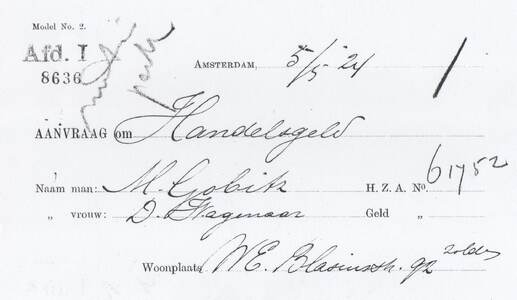 Model No. 2.
Afd. I
8636
AMSTERDAM, 5/5 24
AANVRAAG om Handelsgeld
Naam man: M. Gobitz H. Z. A. No. 61752
„ vrouw: D. Wagenaar Geld „
Woonplaats W E. Blasiusstr. 92 zolder